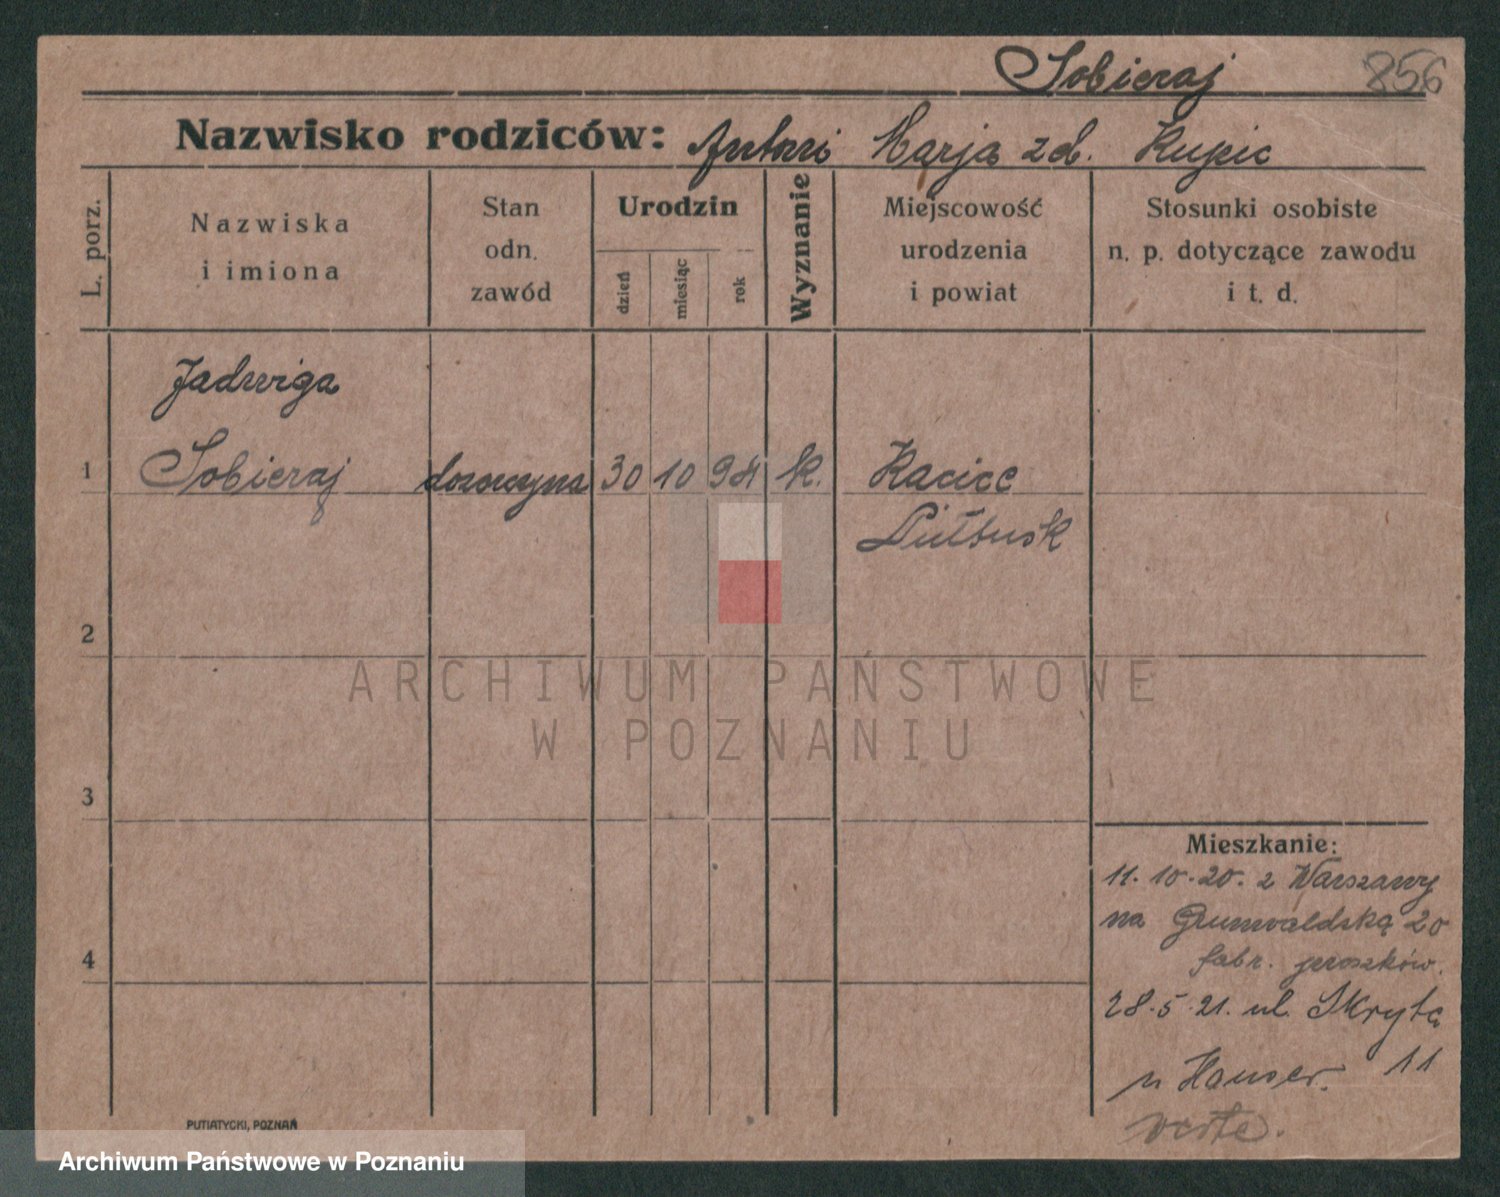 Sobieraj 856
Nazwisko rodziców: Antoni Marja zd. Kupic
L. porz.
Nazwiska
i imiona
Stan
odn.
zawód
Urodzin
dzień
miesiąc
rok
Wyznanie
Miejscowość
urodzenia
i powiat
Stosunki osobiste
n. p. dotyczące zawodu
i t. d.
Jadwiga
1 Sobieraj dozorczyna 30 10 94 k. Kacice
Pułtusk
2
3
4
ARCHIWUM PAŃSTWOWE
W POZNANIU
Mieszkanie:
11.10.20. z Warszawy
na Grunwaldską 20
fabr. proszków.
28.5.21. ul. Skrytą
u Hauser. 11
verte.
PUTIATYCKI, POZNAŃ
Archiwum Państwowe w Poznaniu